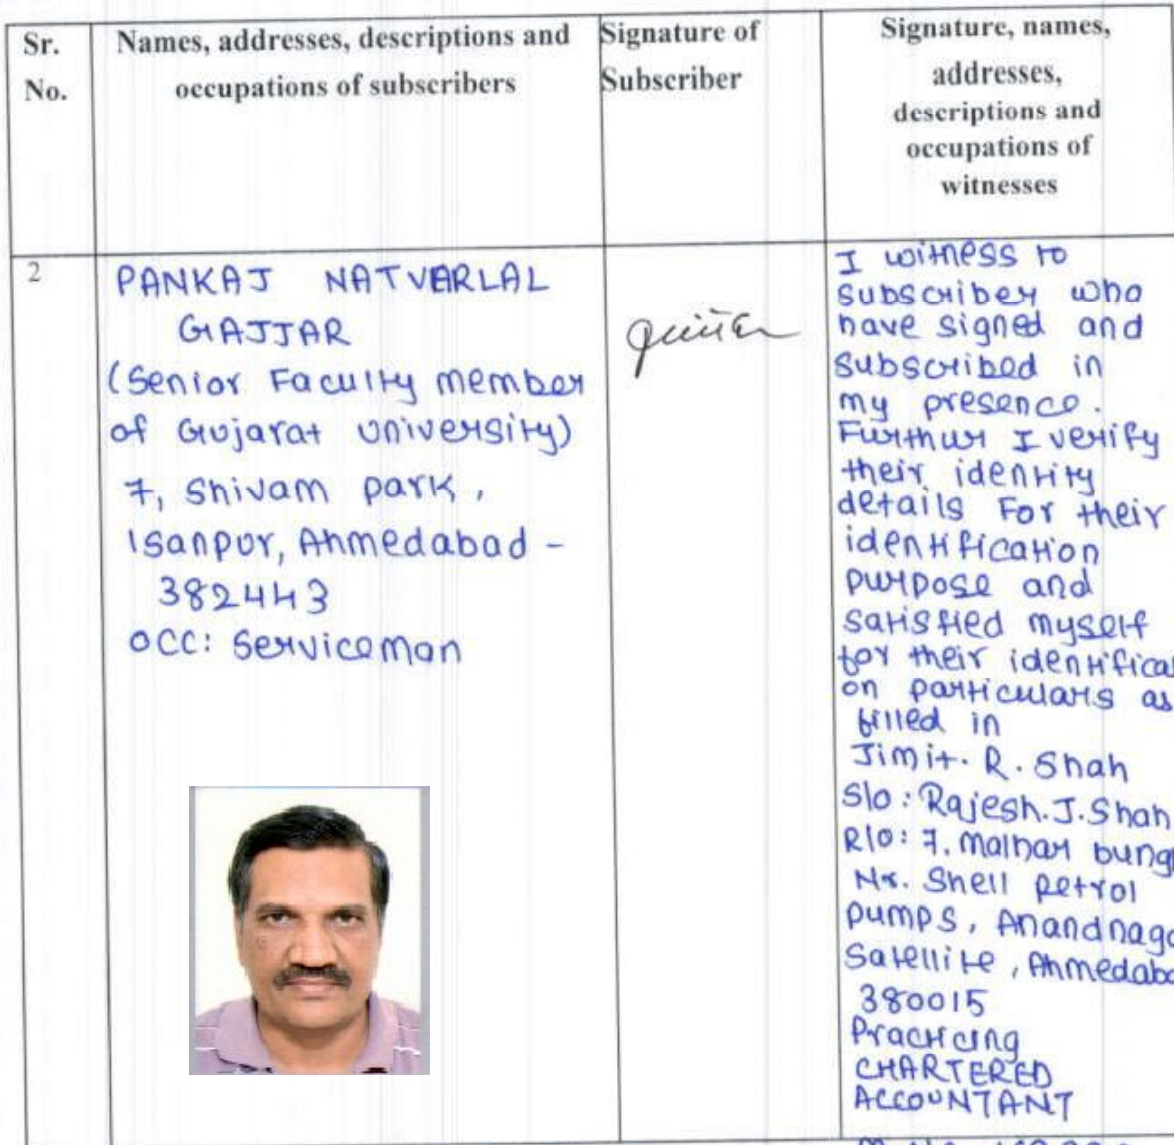 Sr.
No.
Names, addresses, descriptions and
occupations of subscribers
Signature of
Subscriber
Signature, names,
addresses,
descriptions and
occupations of
witnesses
2
PANKAJ NATVARLAL
GAJJAR
(Senior Faculty member
of Gujarat university)
7, Shivam park,
Isanpur, Ahmedabad -
382443
OCC: Serviceman
I witness to
subscriber who
have signed and
subscribed in
my presence.
Furthur I verify
their identity
details For their
identification
purpose and
satisfied myself
for their identificati
on particulars as
filled in
Jimit. R. Shah
S/o: Rajesh. J. Shah
R/o: 7, malhar bung
Nr. Shell petrol
pumps, Anandnaga
Satellite, Ahmedaba
380015
Practicing
CHARTERED
ACCOUNTANT